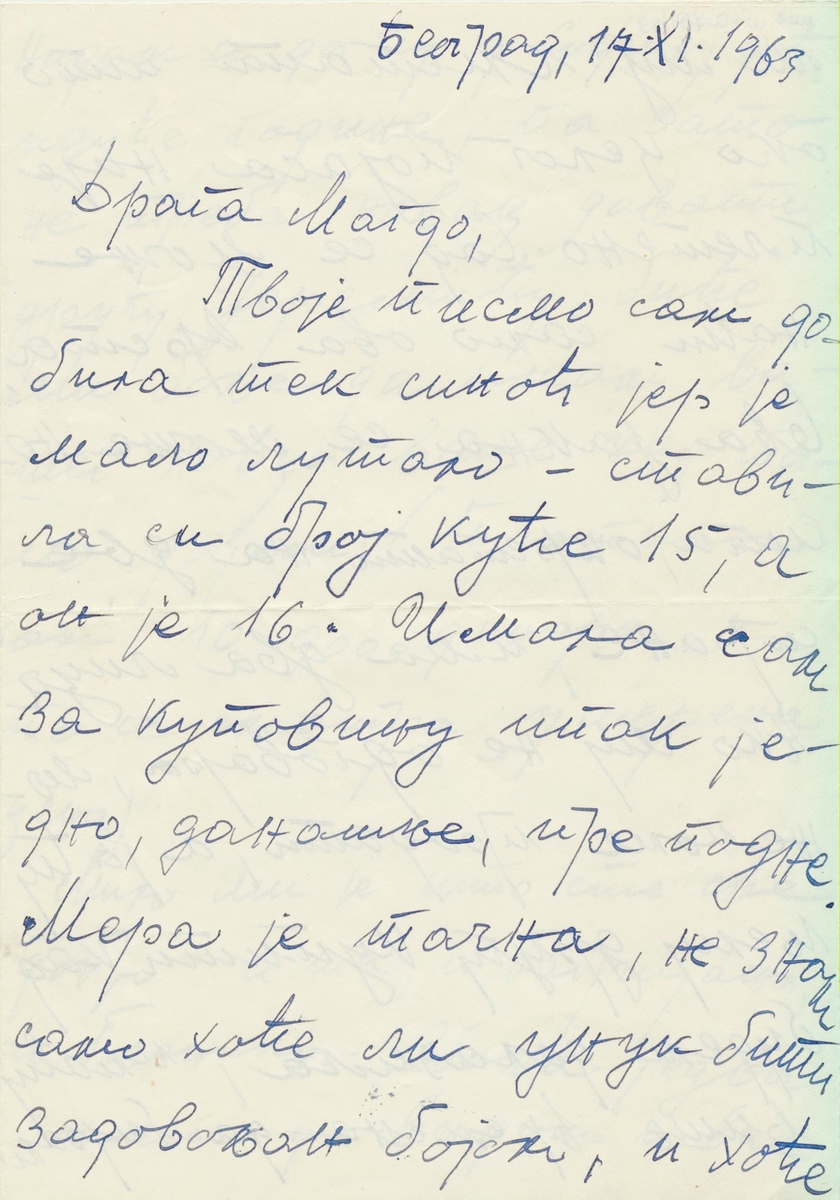 Београд, 17.XI.1963
Драга Магдо,
Твоје писмо сам до-
била тек синоћ јер је
мало лутало – стави-
ла си број куће 15, а
он је 16. Имала сам
за куповину ипак је-
дно, данашње, пре подне.
Мера је тачна, не знам
само хоће ли унук бити
задовољан бојом, и хоће